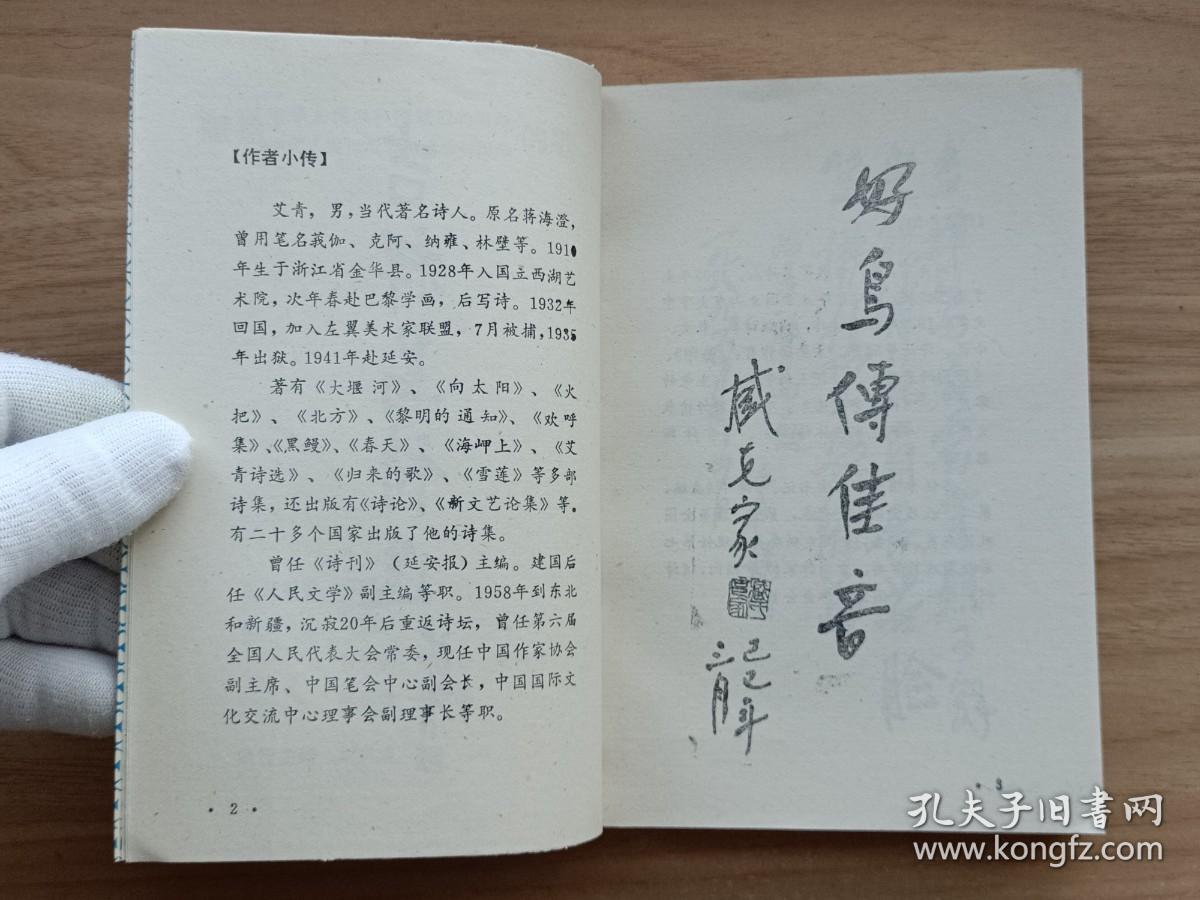 【作者小传】
艾青，男，当代著名诗人。原名蒋海澄，
曾用笔名莪伽、克阿、纳雍、林壁等。1910
年生于浙江省金华县。1928年入国立西湖艺
术院，次年春赴巴黎学画，后写诗。1932年
回国，加入左翼美术家联盟，7月被捕，1935
年出狱。1941年赴延安。
著有《大堰河》、《向太阳》、《火
把》、《北方》、《黎明的通知》、《欢呼
集》、《黑鳗》、《春天》、《海岬上》、《艾
青诗选》、《归来的歌》、《雪莲》等多部
诗集，还出版有《诗论》、《新文艺论集》等。
有二十多个国家出版了他的诗集。
曾任《诗刊》（延安报）主编。建国后
任《人民文学》副主编等职。1958年到东北
和新疆，沉寂20年后重返诗坛，曾任第六届
全国人民代表大会常委，现任中国作家协会
副主席、中国笔会中心副会长，中国国际文
化交流中心理事会副理事长等职。
·2·
好鸟傳佳音
臧克家
己巳年
三月
孔夫子旧书网
www.kongfz.com